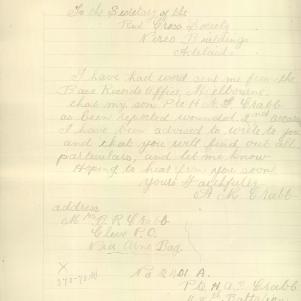 To the Secretary of the
Red Cross Society
Pirie Buildings
Adelaide
I have had word sent me from the
Base Records Office, Melbourne
that my son Pte H. A. F. Crabb
as been reported wounded, 2nd occasion
I have been advised to write to you
and that you will find out all
particulars, and let me know
Hoping to hear from you soon
Yours Faithfully
Crabb
address
Mrs R Crabb
Cleve P.O.
Via Arno Bay
X No 2401 A.
Pte H. A. F. Crabb
Battalion